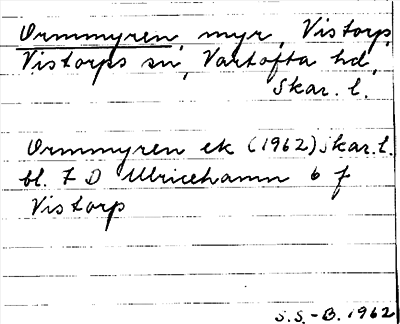 Ormmyren, myr, Vistorp,
Vistorps sn, Vartofta hd,
Skar. l.
Ormmyren ek (1962) Skar. l.
bl. 7 D Ulricehamn 6 f
Vistorp
S.S.-B. 1962